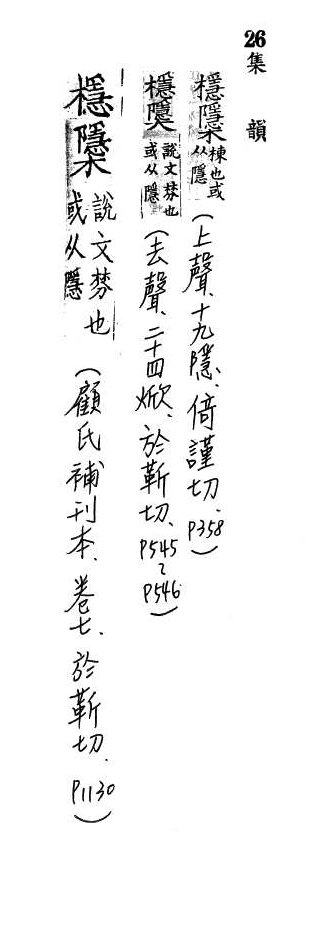 26 集韻
檼櫽棟也或从隱(上聲、十九隱、倚謹切、P358)
檼櫽說文棼也或从隱(去聲、二十四焮、於靳切、P545~P546)
檼櫽說文棼也或从隱(顧氏補刊本、卷七、於靳切、P1130)